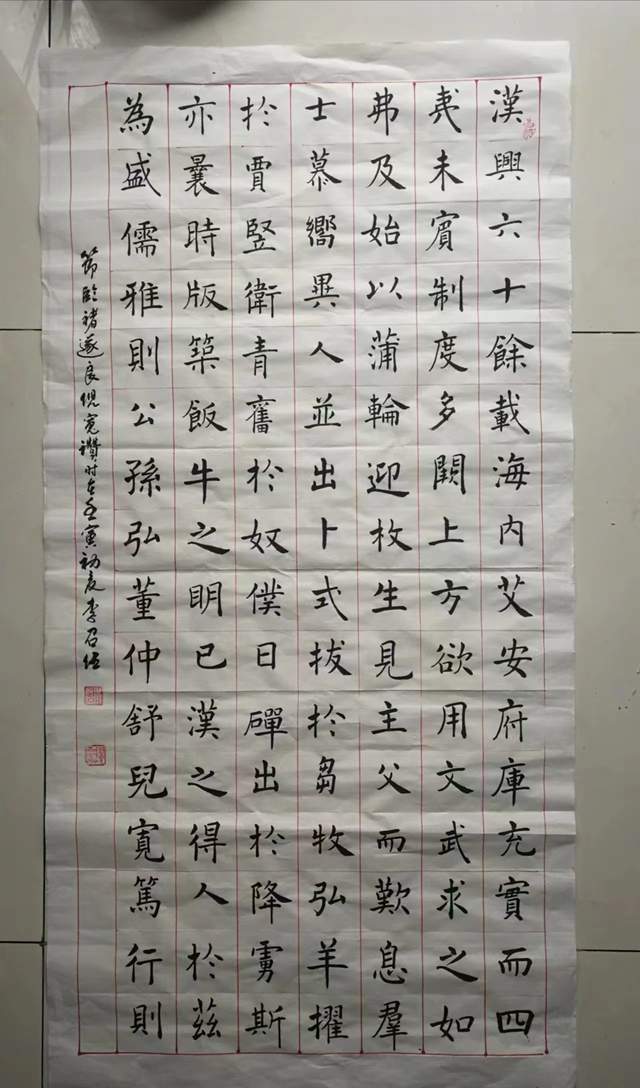 漢興六十餘載海内艾安府庫充實而四
夷未賓制度多闕上方欲用文武求之如
弗及始以蒲輪迎枚生見主父而歎息羣
士慕嚮異人並出卜式拔於芻牧弘羊擢
於賈竪衛青奮於奴僕日磾出於降虜斯
亦曩時版築飯牛之明已漢之得人於茲
為盛儒雅則公孫弘董仲舒兒寬篤行則
節臨褚遂良倪寬讚时在壬寅初夏李召